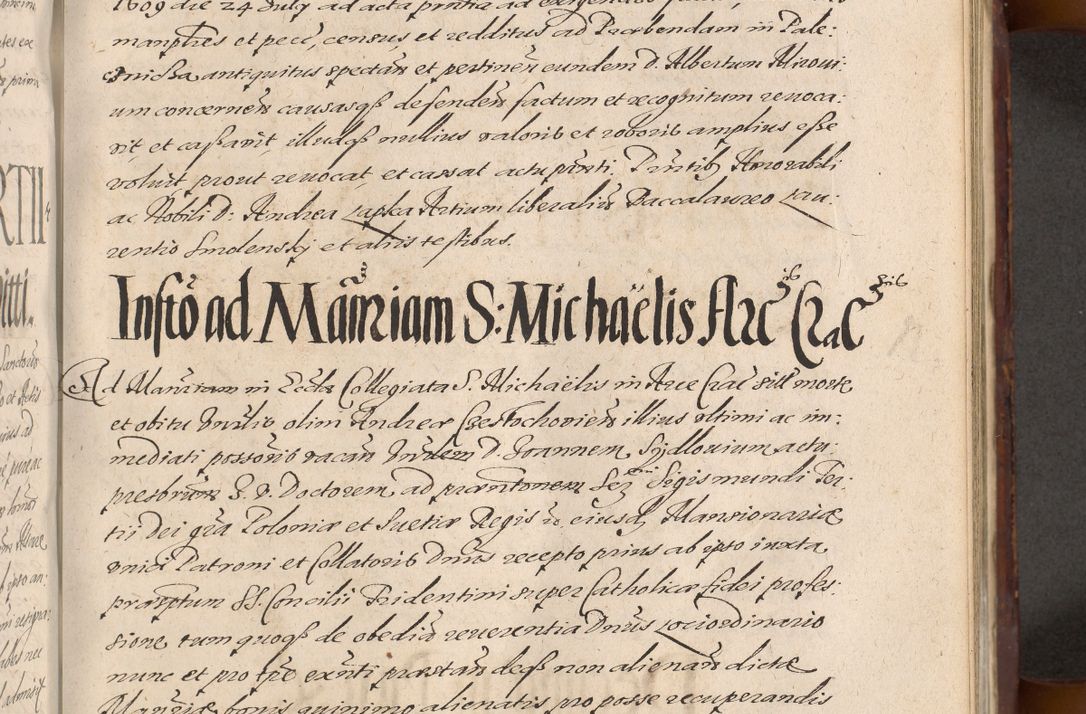 1609 die 24 July ad acta
manentes et pecū, census et redditus ad Præbendam in Pale:
cznißa antiquitus spectān et pertinēn eundem D. Albertum Mirovi:
um concernēn causasq̃ defendēn factum et recognitum revoca:
vit, et caßavit, illudq̃ nullius valoris et roboris amplius eße
voluit, prout revocat, et cassat actu pūti. Pūtib Honorabili
ac Nobili D: Andrea Łapka Artium liberaliū Baccalaureo Lau:
rentio Smolenskÿ et aliis testibus.
Instō ad Māriam S: Michaëlis Arc Crac
Ad Mānriam in Eccła Collegiata S. Michaëlis in Arce Crac sitā morte
et obitu Vnrlis olim Andreæ Czestochovień illius vltimi ac im:
mediati possoris vacān Vnrlem D. Joannem Syjdlovium actu
presbrum J. V. Doctorem, ad præntonem Sez Sigismundi Ter:
tii Dei grā Poloniæ et Sueciæ Regis ec eiusd Mansionariæ
vnici Patroni et Collatoris Dnus recepto prius ab ipso iuxta
præptum SS. Concilii Tridentini super Catholicæ fidei profes:
sione, tum quoq̃ de obediā reverentia Dnus Lociordinario
nunc et pro tpe exnti præstān deq̃ non alienān dictæ
Mānriæ bonis quinimo alienatis pro posse recuperandis